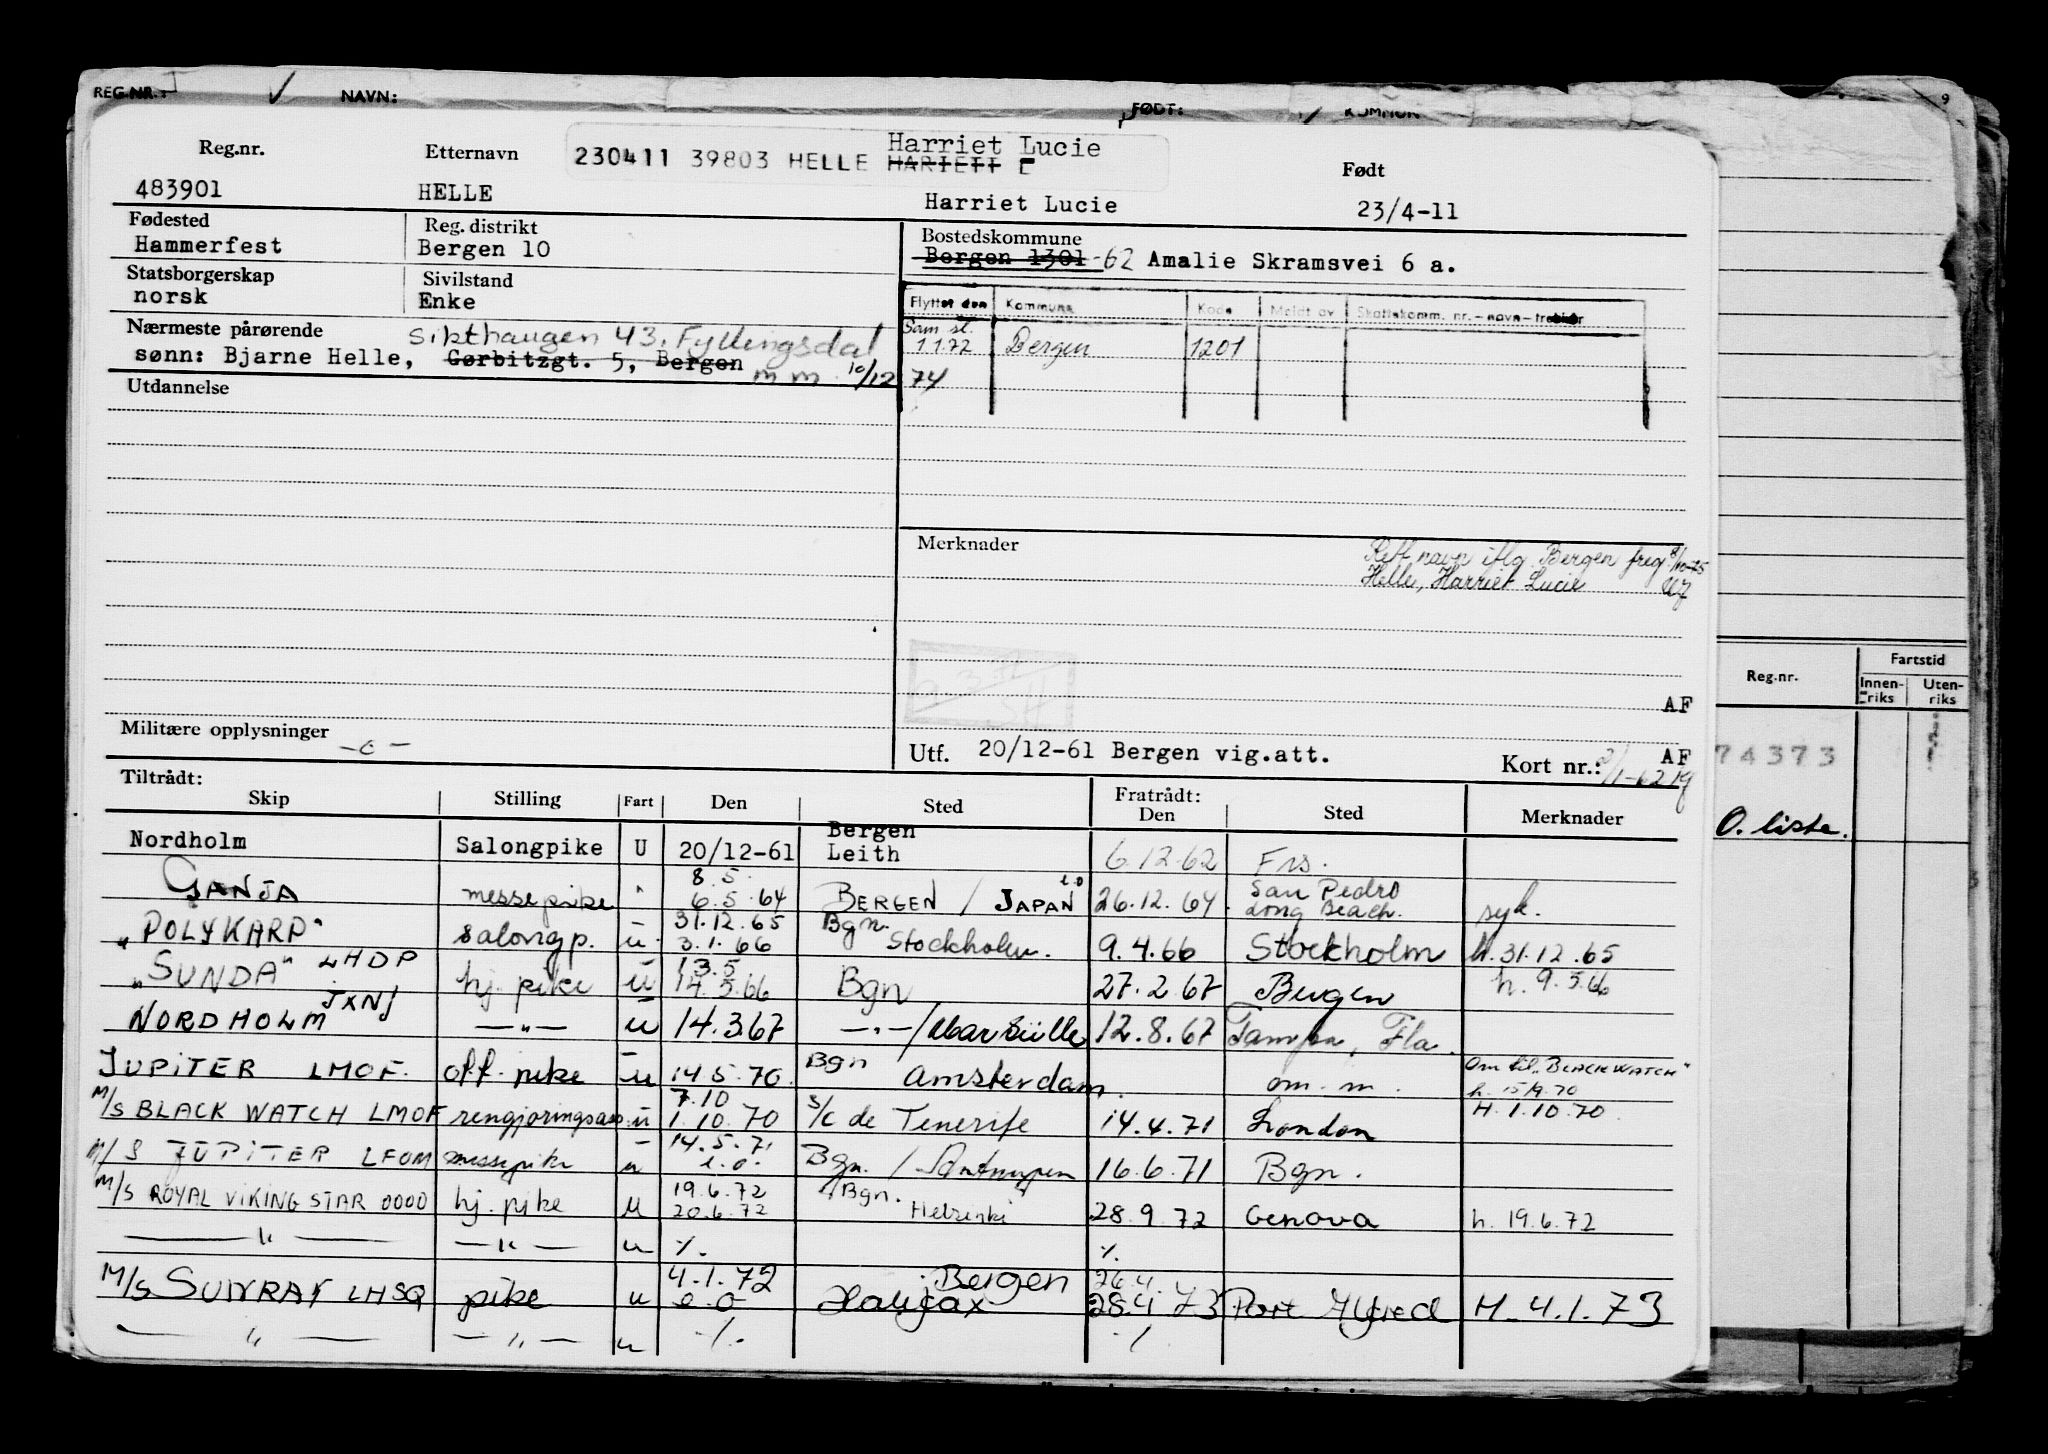 REG.NR.: NAVN: FØDT: KOMMUN 9
Reg.nr. Etternavn 230411 39803 HELLE HARIETT E Harriet Lucie Født
483901 HELLE Harriet Lucie 23/4-11
Fødested Reg. distrikt Bostedskommune
Hammerfest Bergen 10 Bergen 1301 -62 Amalie Skramsvei 6 a.
Statsborgerskap Sivilstand
norsk Enke
Flyttet den Kommune Kode Meldt av Skattekomm. nr. - navn -
Sam. sl.
1.1.72 Bergen 1201
Nærmeste pårørende Sikthaugen 43. Fyllingsdal
sønn: Bjarne Helle, Gørbitzgt. 5, Bergen
m m 10/12 74
Utdannelse
Merknader
Rett navn iflg. Bergen freg. 8/10-75
Helle, Harriet Lucie
AF
Militære opplysninger
Utf. 20/12-61 Bergen vig.att. Kort nr.: AF
Tiltrådt: Fratrådt:
Skip Stilling Fart Den Sted Den Sted Merknader
Nordholm Salongpike U 20/12-61 Bergen Leith 6.12.62 Frs.
GANJA messepike " 8.5. 6.5.64 BERGEN / JAPAN i.o 26.12.64 San Pedro Long Beach. syk.
"POLYKARP" salongp. u 31.12.65 3.1.66 Bgn. Stockholm. 9.4.66 Stockholm h.31.12.65
"SUNDA" LHDP hj. pike u 13.5 14.5.66 Bgn 27.2.67 Bergen h. 9.5.66
NORDHOLM JXNJ —"— u 14.3.67 —"—/Marseille 12.8.67 Tampa, Fla.
JUPITER LMOF. off. pike u 14.5.70. Bgn Amsterdam. om. m. Om til "BLACK WATCH" h. 15/9.70
M/S BLACK WATCH LMOF rengjøringsass u 7.10 1.10.70 S/C de Tenerife 14.4.71 London H.1.10.70.
M/S JUPITER LFOM messepike u 14.5.71 i.o. Bgn. / Antwerpen 16.6.71 Bgn.
M/S ROYAL VIKING STAR 0000 hj. pike u 19.6.72 20.6.72 Bgn. Helsinki 28.9.72 Genova h. 19.6.72
—"— —"— u %. %.
M/S SUNRAY LHSQ pike u 4.1.72 e.o Bergen Halifax 26.4. 28.4.73 Port Alfred H. 4.1.73
—"— —"— u %. %
Reg.nr. Fartstid
Innen-riks Uten-riks
74373
O. liste.